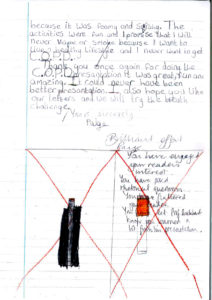 because it was roomy and
The
activities were fun and I promise that I will
never Vape or smoke because I want to
healthy lifestyle and I never want to get
C.O.P.D
Thank you once again for doing the
C.O.P.D presentation it was great, fun and
amazing. It could never have been
better presentation. I also hope you like
our letters and we will try the health
challenge.
Yours sincerely
Paige
Brilliant effort
Paige
You have engaged
your readers
interest.
You have used
rhetorical questions
flattered
your reader
You let Prof
know you learned a
lot from his presentation.